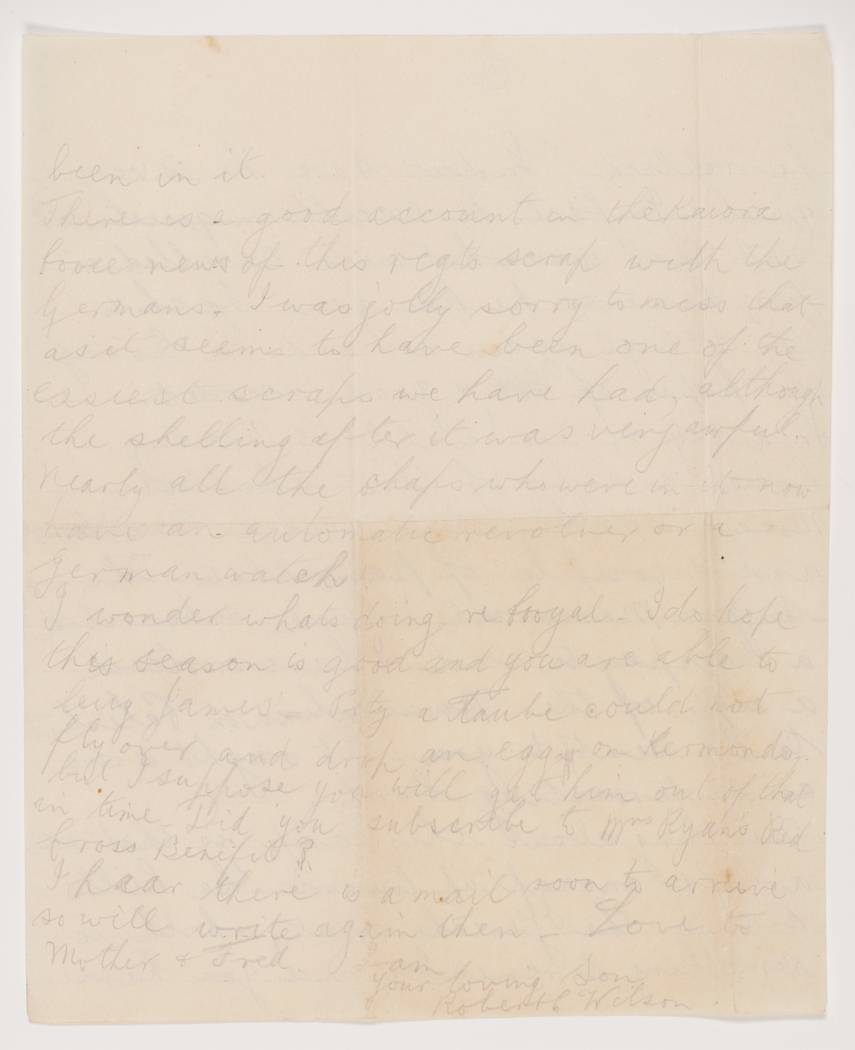 been in it.
There is a good account in the Kaiora
Cooee news of this regts scrap with the
Germans. I was jolly sorry to miss that
as it seems to have been one of the
easiest scraps we have had, although
the shelling after it was very awful.
Nearly all the chaps who were in it now
have an automatic revolver or a
German watch
I wonder whats doing re Booyal - I do hope
this season is good and you are able to
buy James' - Pity a Taube could not
fly over and drop an egg on
but I suppose you will get him out of that
in time - Did you subscribe to Mrs Ryan's Red
Cross Benifit ?
I hear there is a mail soon to arrive
so will write again then - Love to
Mother & Fred.
am
your loving Son
Robert C Wilson.